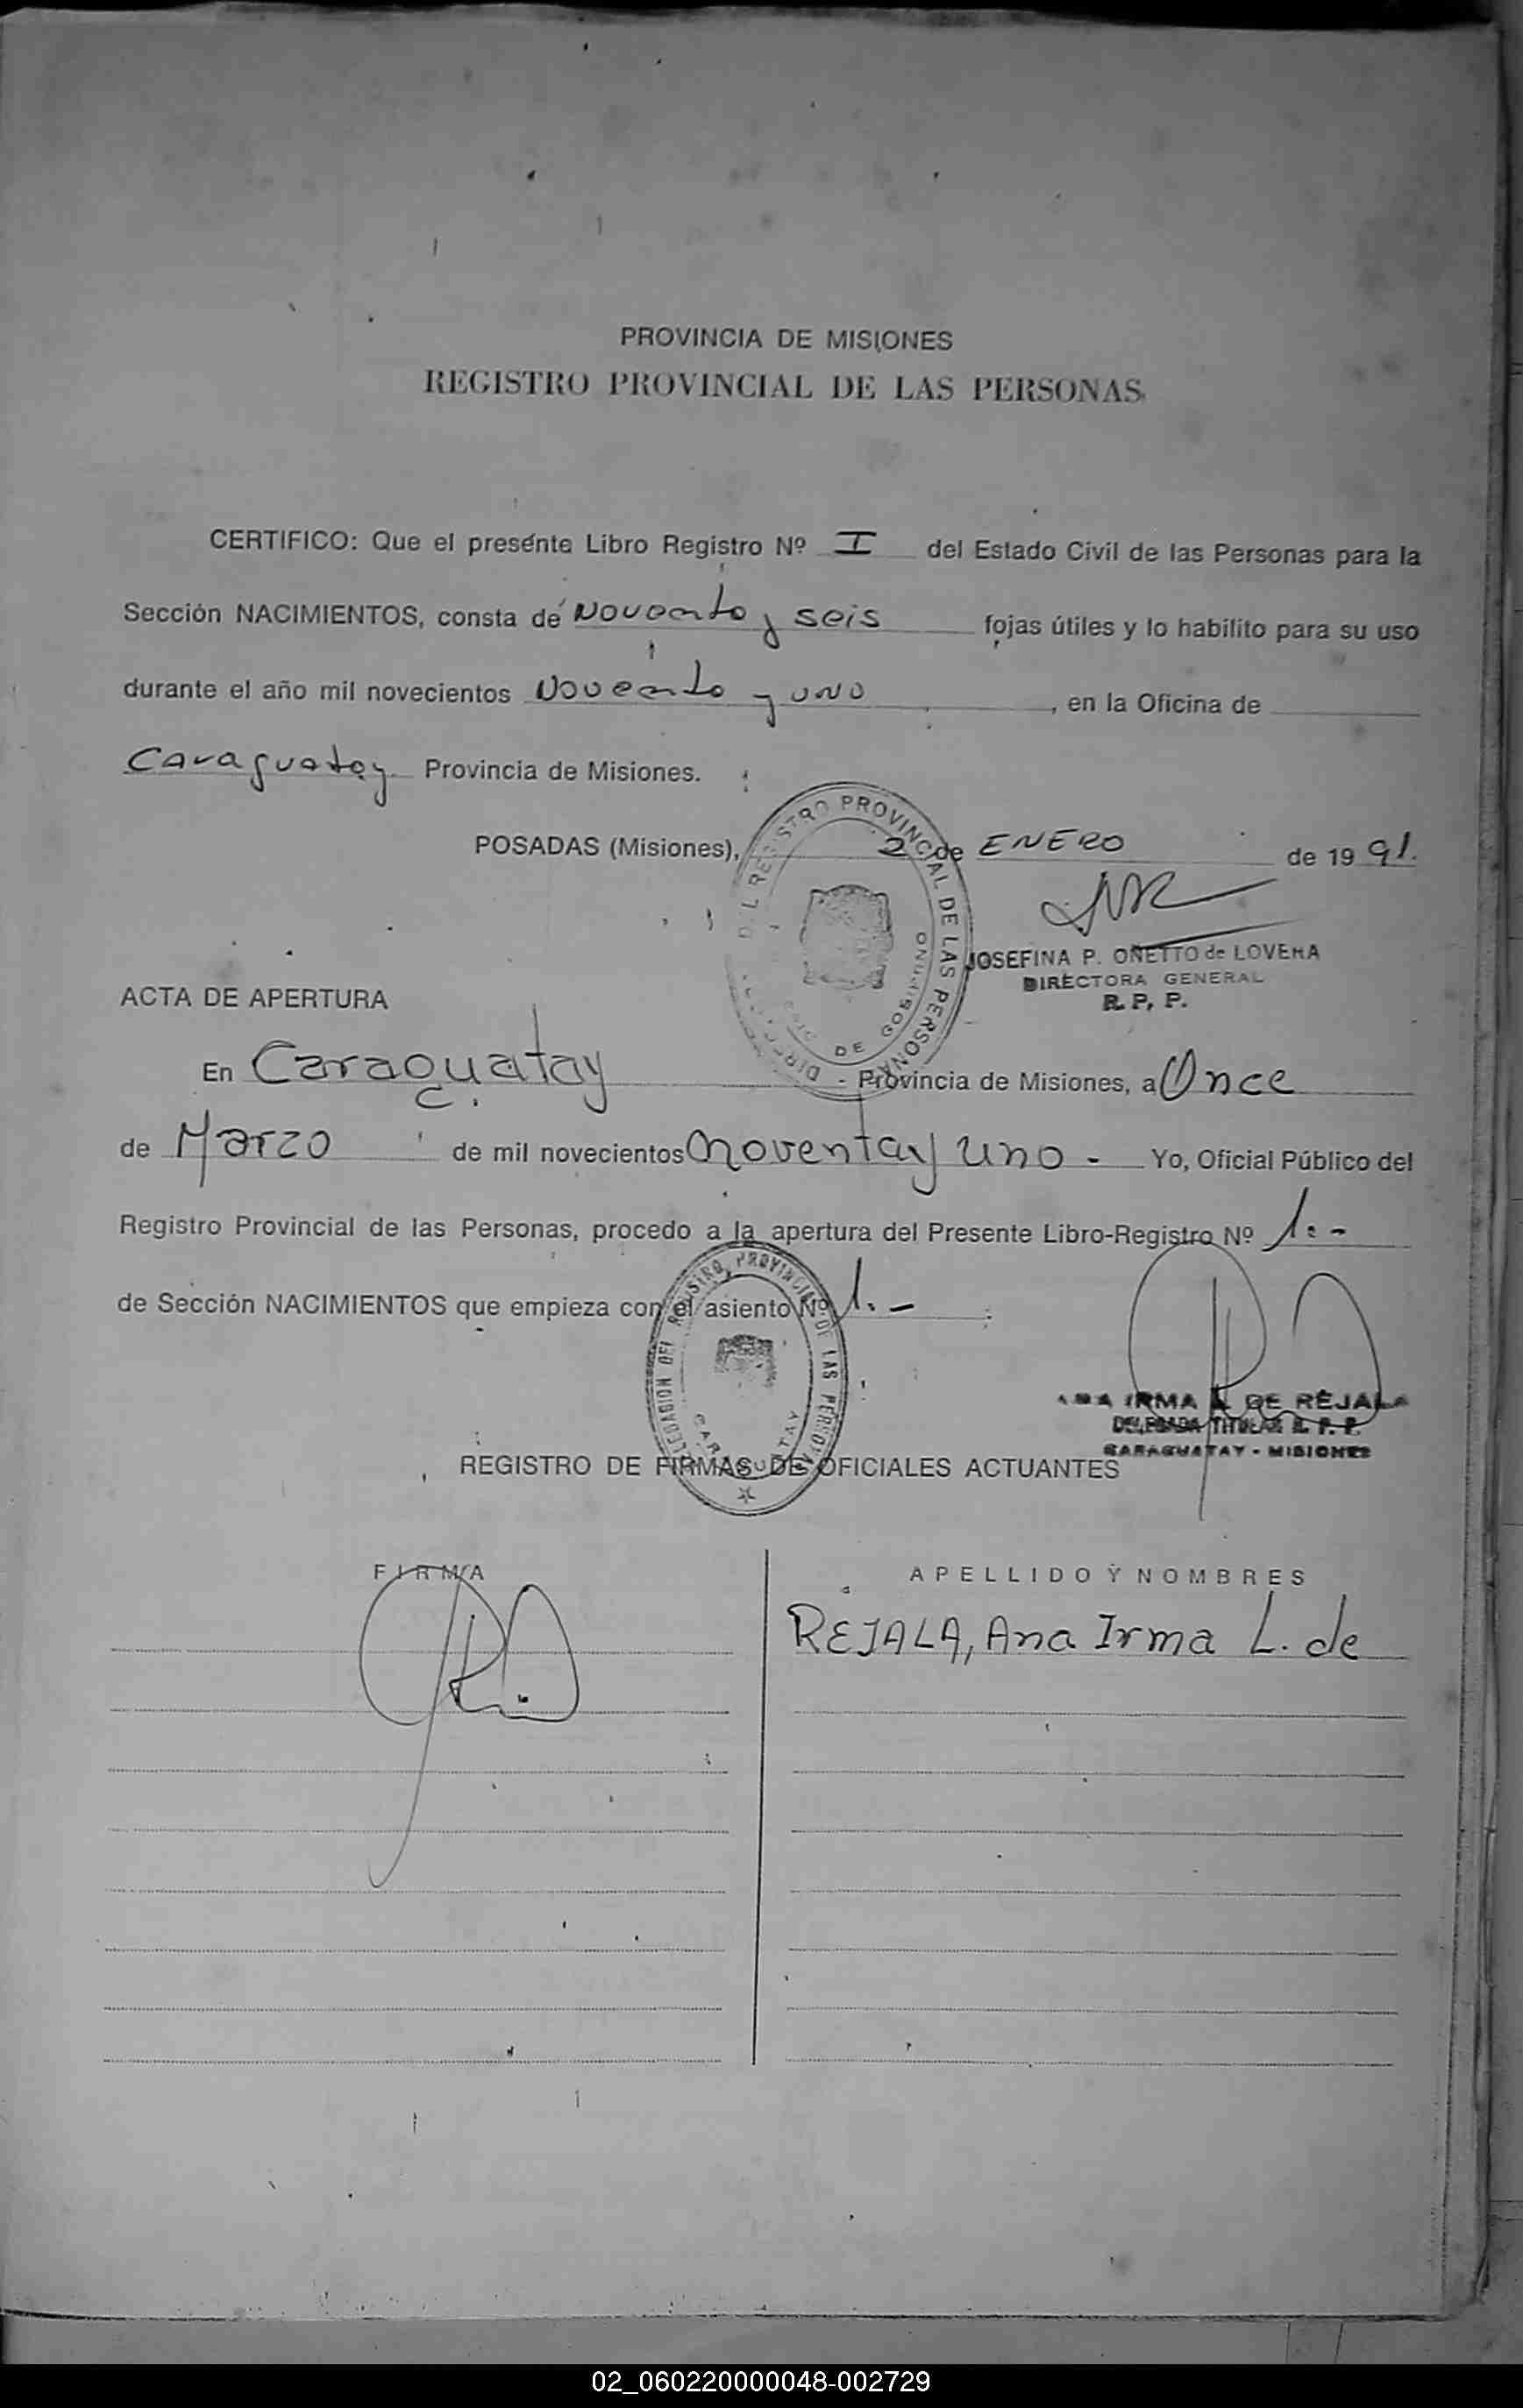 PROVINCIA DE MISIONES
REGISTRO PROVINCIAL DE LAS PERSONAS
CERTIFICO: Que el presente Libro Registro Nº I del Estado Civil de las Personas para la
Sección NACIMIENTOS, consta de Noventa y seis fojas útiles y lo habilito para su uso
durante el año mil novecientos Noventa y uno, en la Oficina de
Caraguatay Provincia de Misiones.
POSADAS (Misiones), 2 de ENERO de 1991.
JOSEFINA P. OÑETTO de LOVERA
DIRECTORA GENERAL
R. P. P.
DEL REGISTRO PROVINCIAL DE LAS PERSONAS
DE GOBIERNO
ACTA DE APERTURA
En Caraguatay - Provincia de Misiones, a Once
de Marzo de mil novecientos noventa y uno - Yo, Oficial Público del
Registro Provincial de las Personas, procedo a la apertura del Presente Libro-Registro Nº 1.-
de Sección NACIMIENTOS que empieza con el asiento Nº 1.-
DELEGACION DEL REGISTRO PROVINCIAL DE LAS PERSONAS
CARAGUATAY
ANA IRMA L. DE REJALA
DELEGADA TITULAR R. P. P.
CARAGUATAY - MISIONES
REGISTRO DE FIRMAS DE OFICIALES ACTUANTES
FIRMA
APELLIDO Y NOMBRES
REJALA, Ana Irma L. de
02_060220000048-002729